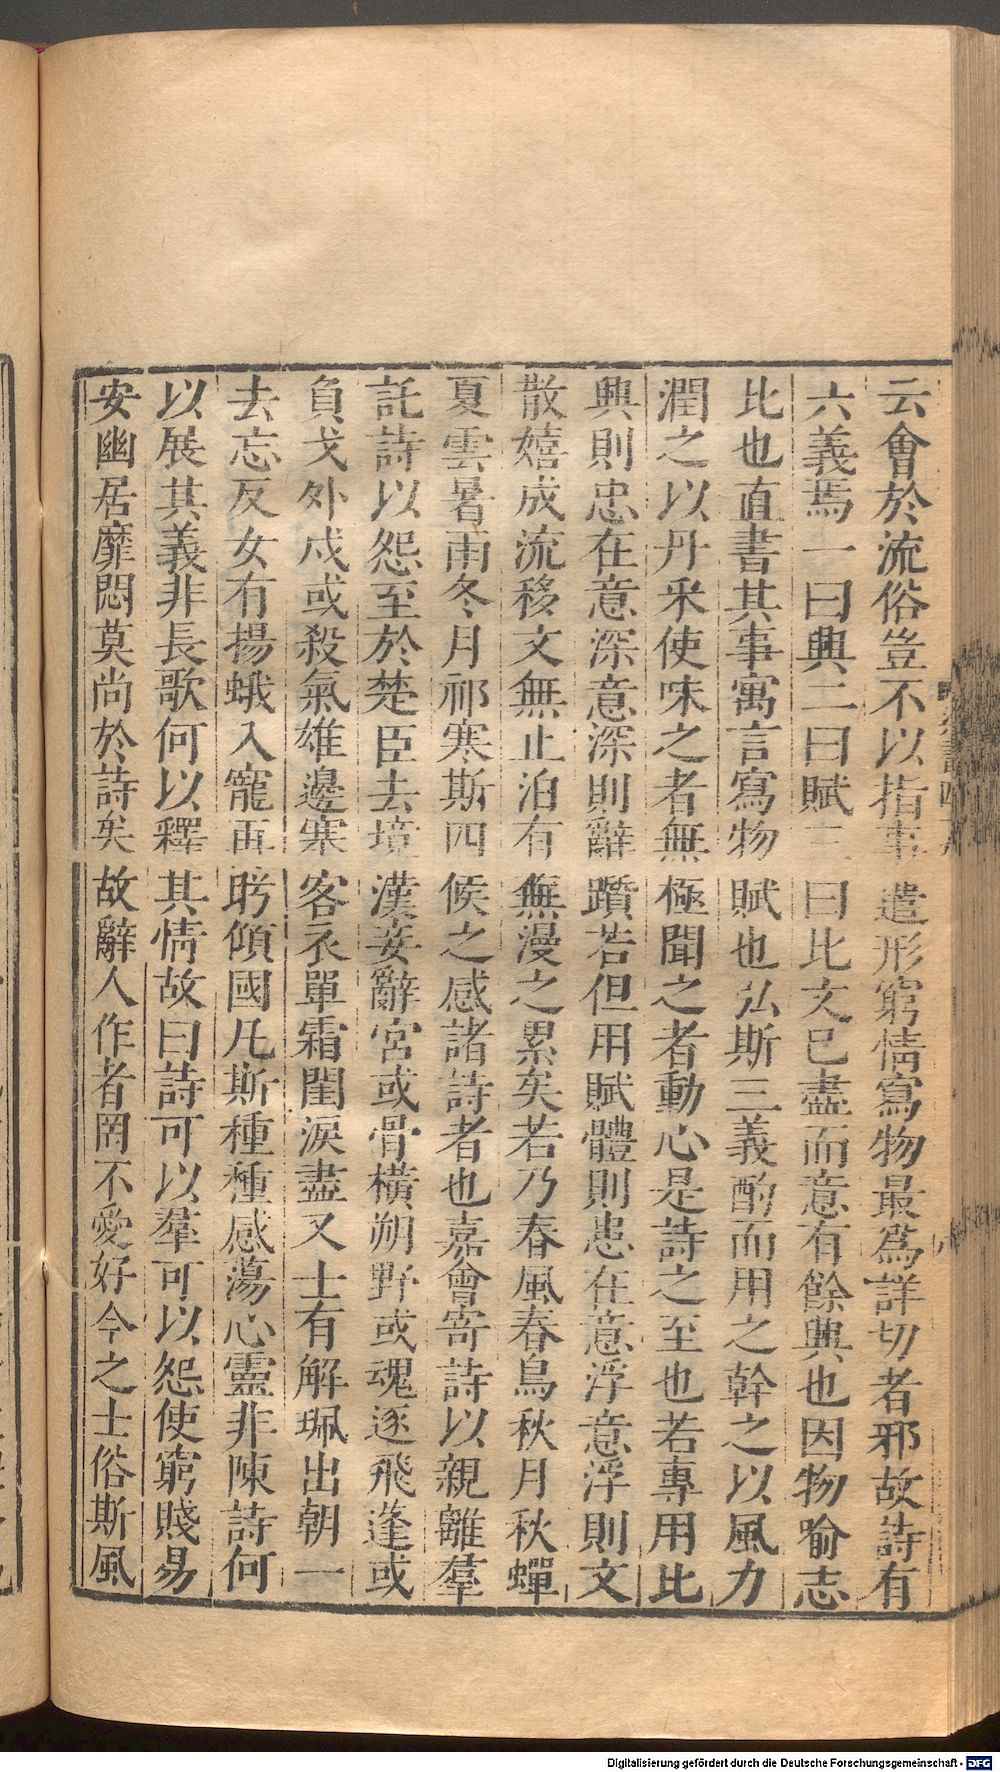 云會於流俗豈不以指事遣形窮情寫物最爲詳切者邪故詩有
六義焉一曰興二曰賦三曰比文已盡而意有餘興也因物喻志
比也直書其事寓言寫物賦也弘斯三義酌而用之幹之以風力
潤之以丹采使味之者無極聞之者動心是詩之至也若專用比
興則忠在意深意深則辭躓若但用賦體則患在意浮意浮則文
散嬉成流移文無止泊有蕪漫之累矣若乃春風春鳥秋月秋蟬
夏雲暑雨冬月祁寒斯四候之感諸詩者也嘉會寄詩以親離羣
託詩以怨至於楚臣去境漢妾辭宮或骨橫朔野或魂逐飛蓬或
負戈外戍或殺氣雄邊寒客衣單霜閨淚盡又士有解珮出朝一
去忘反女有揚蛾入寵再盼傾國凡斯種種感蕩心靈非陳詩何
以展其義非長歌何以釋其情故曰詩可以羣可以怨使窮賤易
安幽居靡悶莫尚於詩矣故辭人作者罔不愛好今之士俗斯風
Digitalisierung gefördert durch die Deutsche Forschungsgemeinschaft - DFG